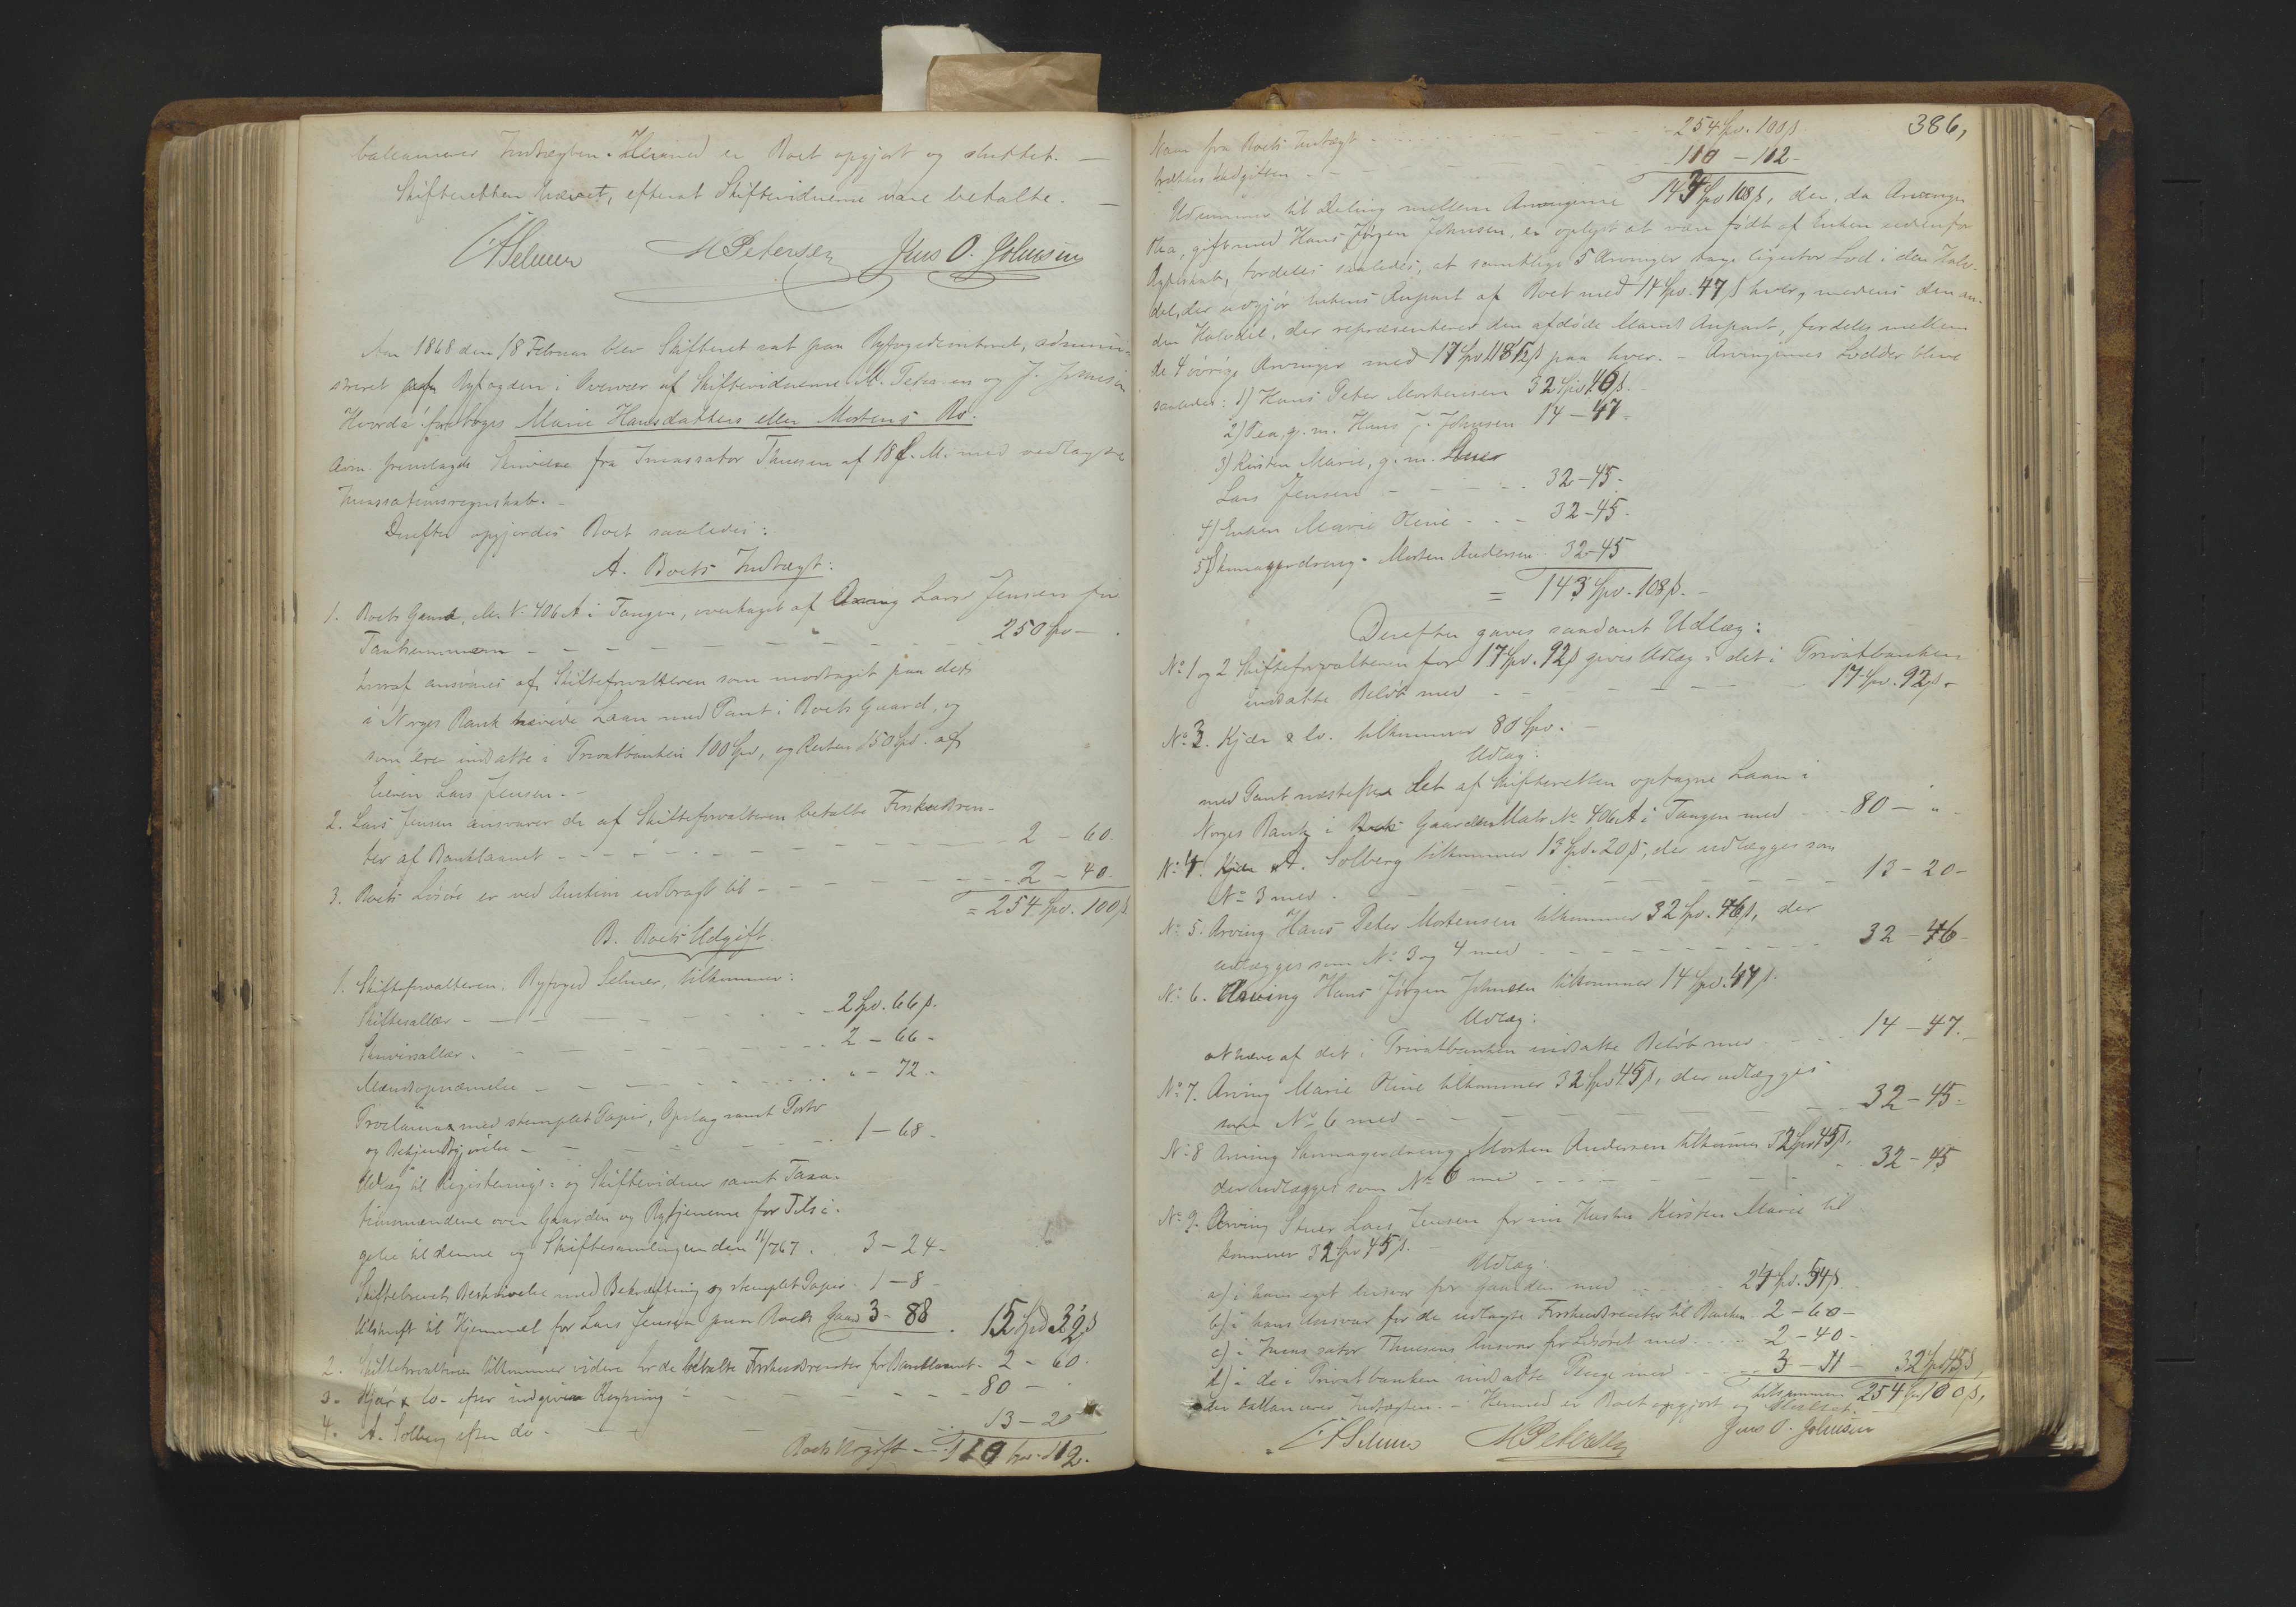 balancerer Indtægten. Hermed er Boet opgjort og sluttet. —
Skifteretten hævet, efterat Skiftevidnerne vare betalte. —
CASelmer MPetersen Jens O. Johnsen
Aar 1868 den 18 Februar blev Skifteret sat paa Byfogedcontoret, admini-
streret af Byfogden i Overvær af Skiftevidnerne M. Petersen og J. Johnsen
Hvorda: foretoges Marie Hansdatters eller Mortens Bo.
Adm. fremlagde Skrivelse fra Incassator Thuesen af 18 d. M. med vedlagte
Incassationsregnskab. –
Derefter opgjordes Boet saaledes:
A. Boets Indtægt:
1. Boets Gaard, Mtr. N. 406 A i Tangen, overtaget af Arving Lars Jensen for
Taxtsummen - - - - 250 Spd –
hvoraf ansvares af Skifteforvalteren som modtaget paa det
i Norges Bank hævede Laan med Pant i Boets Gaard, og
som ere indsatte i Privatbanken 100 Spd, og Resten 150 Spd. af
Eieren Lars Jensen. –
2. Lars Jensen ansvarer de af Skifteforvalteren betalte Forskudsren-
ter af Banklaanet - - - - 2 – 60.
3. Boets Løsøre er ved Auction udbragt til - - - - 2 – 40.
= 254 Spd. 100 ß
B. Boets Udgift
1. Skifteforvalteren, Byfoged Selmer, tilkommer:
Skiftesallær - - - 2 Spd. 66 ß.
Skriversallær - - - 2 – 66 –
Mændsopnævnelse - - - " – 72 –
Proclama med stemplet Papir, Opslag samt Porto
og Bekjendtgjørelse - - - 1 – 68 –
Udlæg til Registerings- og Skiftevidner samt Taxa-
tionsmændene over Gaarden og Bytjenerne for Tilsi-
gelse til denne og Skiftesamlingen den 11/7 67. 3 – 24 –
Skiftebrevets Beskrivelse med Bekræftning og stemplet Papir. 1 – 8 –
Udskrift til Hjemmel for Lars Jensen paa Boets Gaard 3 – 88 . 15 Spd 32 ß
2. Skifteforvalteren tilkommer videre for de betalte Forskudsrenter for Banklaanet - 2 – 60.
3. Kjær & Co. efter indgiven Regning - - - 80 – .
4. A. Solberg efter do - - - 13 – 20
Boets Udgift - - 110 Spd. 112.
386,
Naar fra Boets Indtægt - - - 254 Spd. 100 ß
trækkes Udgiften - - - 110 – 112 –
Udkommer til Deling mellem Arvingerne 143 Spd 108 ß, der, da Arvingen
Thea, gift med Hans Jørgen Johnsen, er oplyst at være født af Enken udenfor
Ægteskab, fordeles saaledes, at samtlige 5 Arvinger tage ligestor Lod i den Halv-
del, der udgjør Enkens Anpart af Boet med 14 Spd. 47 ß hver, medens den an-
den Halvdel, der repræsenterer den afdøde Mands Anpart, fordeles mellem
de 4 øvrige Arvinger med 17 Spd 118 ½ ß paa hver. – Arvingernes Lodder blive
saaledes: 1) Hans Peter Mortensen 32 Spd 46 ß.
2) Tea, g. m. Hans J. Johnsen 14 – 47 –
3) Kirsten Marie, g. m.
Lars Jensen - - - 32 – 45 –
4) Enken Marie Oline - - - 32 – 45 –
5) Skomagerdreng Morten Andersen 32 – 45
= 143 Spd. 108 ß. –
Derefter gaves saadant Udlæg:
No. 1 og 2 Skifteforvalteren for 17 Spd. 92 ß gives Udlæg i det i Privatbanken
indsatte Beløb med - - - 17 Spd. 92 ß.
No. 3. Kjær & Co. tilkommer 80 Spd. –
Udlæg:
med Pant næstefter det af Skifteretten optagne Laan i
Norges Bank i Gaarden Matr. No. 406 A i Tangen med - - 80 – "
No. 4. A. Solberg tilkommer 13 Spd. 20 ß, der udlægges som
No. 3 med - - - 13 – 20 –
No. 5. Arving Hans Peter Mortensen tilkommer 32 Spd. 46 ß, der
udlægges som No. 3 og 4 med - - - 32 – 46 –
No. 6. Arving Hans Jørgen Johnsen tilkommer 14 Spd. 47 ß.
Udlæg:
at hæve af det i Privatbanken indsatte Beløb med - - - 14 – 47.
No. 7. Arving Marie Oline tilkommer 32 Spd 45 ß, der udlægges
som No. 6 med - - - 32 – 45 –
No. 8 Arving Skomagerdreng Morten Andersen tilkommer 32 Spd 45 ß,
der udlægges som No. 6 med - - - 32 – 45
No. 9. Arving Stuer Lars Jensen for sin Hustru Kirsten Marie til-
kommer 32 Spd 45 ß. –
Udlæg:
a) i hans eget Ansvar for Gaarden med - - 24 Spd. 54 ß
b) i hans Ansvar for de udlagte Forskudsrenter til Banken 2 – 60 –
c) i Incassator Thuesens Ansvar for Løsøret med - - 2 – 40 –
d) i de i Privatbanken indsatte Penge med - - 3 – 11 – 32 Spd 45 ß
tilsammen 254 Spd 100 ß,
der ballancerer Indtægten. – Hermed er Boet opgjort og sluttet.
CASelmer MPetersen Jens O. Johnsen